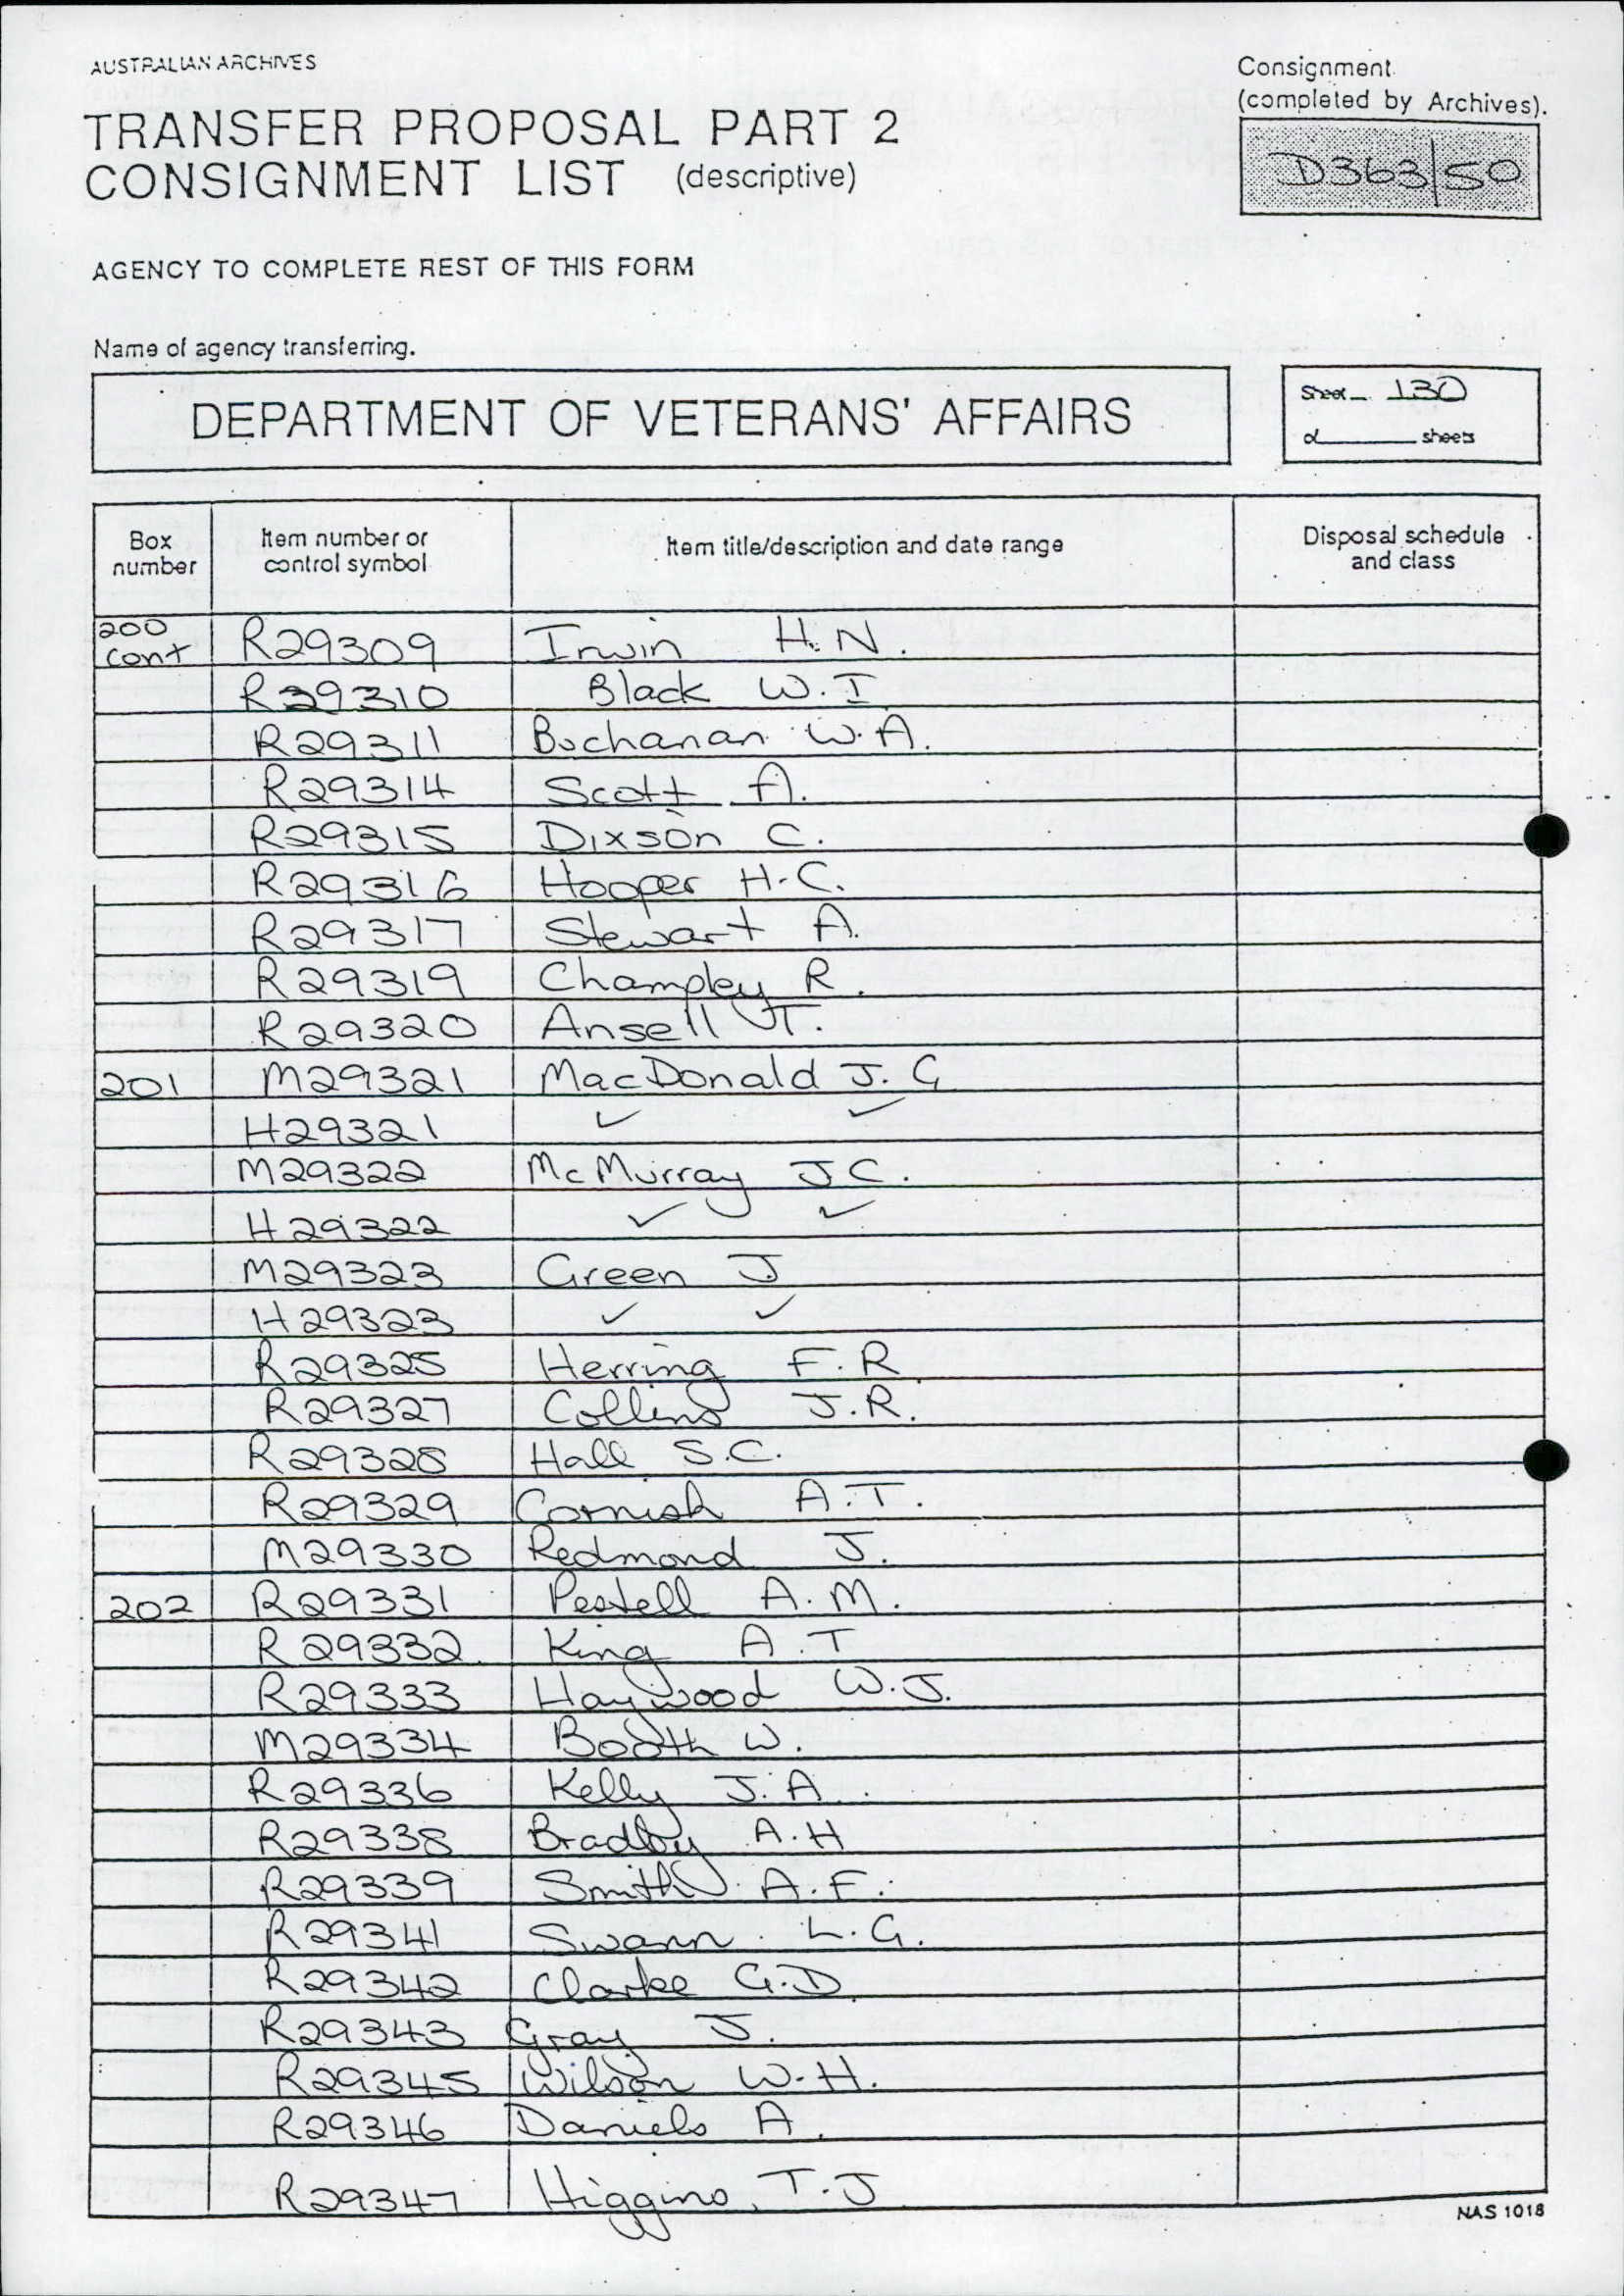 AUSTRALIAN ARCHIVES
TRANSFER PROPOSAL PART 2
CONSIGNMENT LIST (descriptive)
Consignment
(completed by Archives).
D363/50
AGENCY TO COMPLETE REST OF THIS FORM
Name of agency transferring.
DEPARTMENT OF VETERANS' AFFAIRS
Sheet 130
of sheets
Box number Item number or control symbol Item title/description and date range Disposal schedule and class
200 cont R29309 Irwin H.N.
R29310 Black W.I
R29311 Buchanan W.A.
R29314 Scott A.
R29315 Dixson C.
R29316 Hooper H.C.
R29317 Stewart A.
R29319 Champley R.
R29320 Ansell T.
201 M29321 MacDonald J.G
H29321 ✓ ✓
M29322 McMurray J C.
H29322 ✓ ✓
M29323 Green J
H29323 ✓ ✓
R29325 Herring F.R
R29327 Collins J.R.
R29328 Hall S.C.
R29329 Cornish A.T.
M29330 Redmond J.
202 R29331 Pestell A.M.
R29332 King A.T
R29333 Haywood W.J.
M29334 Booth W.
R29336 Kelly J.A.
R29338 Bradby A.H
R29339 Smith A.F.
R29341 Swann L.G.
R29342 Clarke G.D.
R29343 Gray J.
R29345 Wilson W.H.
R29346 Daniels A.
R29347 Higgins T.J
NAS 1018